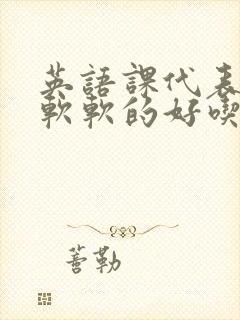 英語課代表
軟軟的好喫
蓍勒